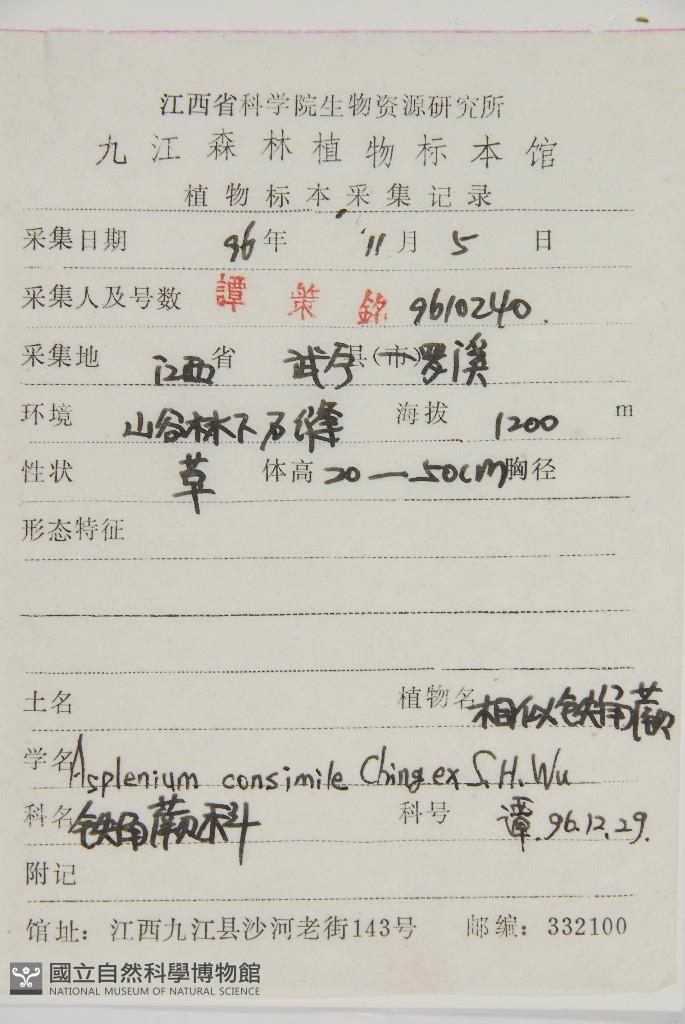 江西省科学院生物资源研究所
九江森林植物标本馆
植物标本采集记录
采集日期 96年 11月 5 日
采集人及号数 譚策銘 9610240.
采集地 江西省 武宁县(市) 罗溪
环境 山谷林下石缝 海拔 1200 m
性状 草 体高 20—50cm 胸径
形态特征
土名 植物名 相似铁角蕨
学名 Asplenium consimile Ching ex S.H. Wu
科名 铁角蕨科 科号 谭. 96.12.29.
附记
馆址: 江西九江县沙河老街143号 邮编: 332100
國立自然科學博物館
NATIONAL MUSEUM OF NATURAL SCIENCE